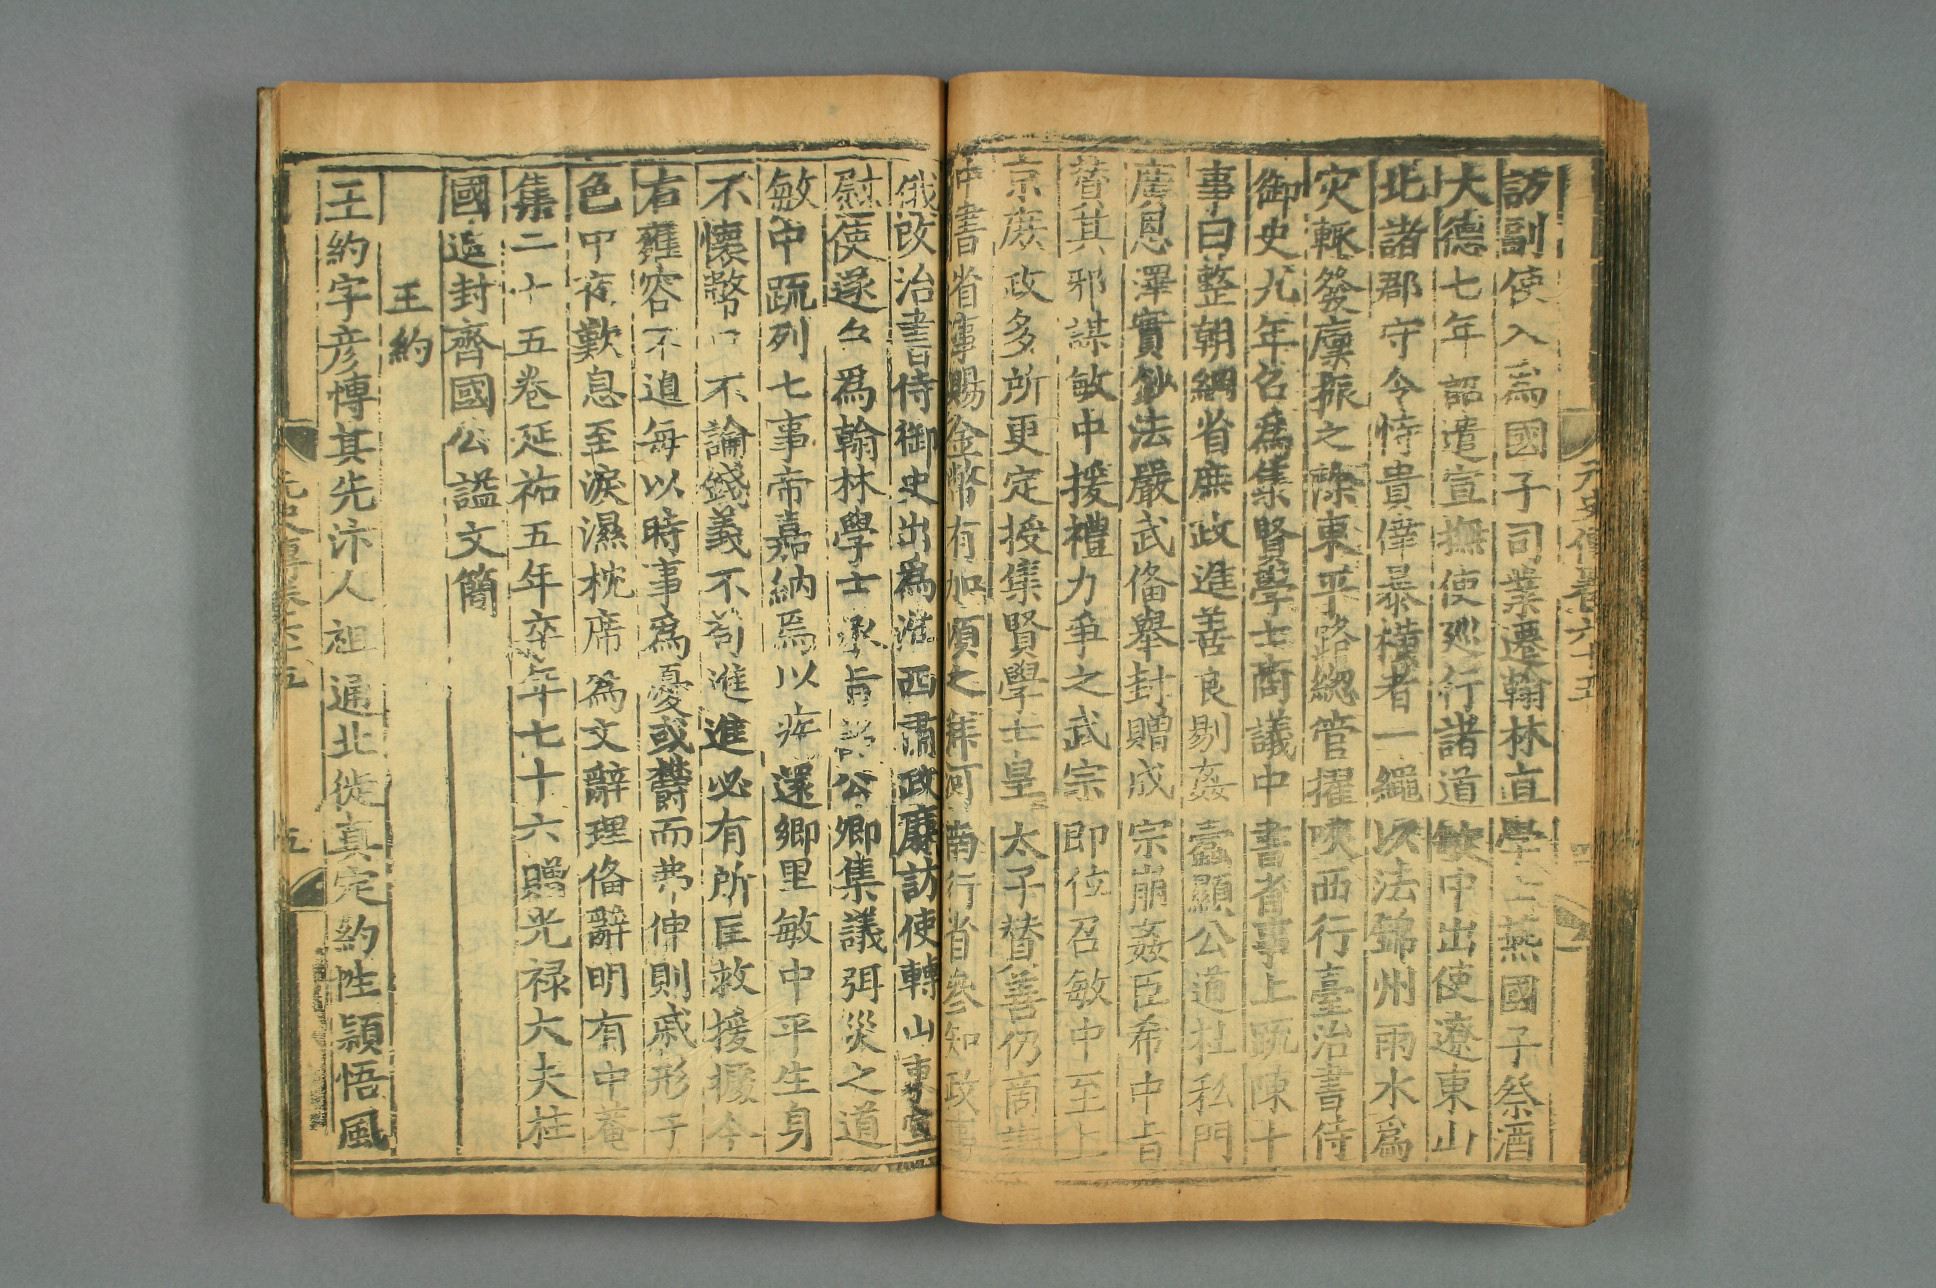 訪副使入爲國子司業遷翰林直學士燕國子祭酒
大德七年詔遣宣撫使廵行諸道敏中出使遼東山
北諸郡守令恃貴倖暴橫者一繩以法錦州雨水爲
灾輒發廩振之除東平路緫管擢陝西行臺治書侍
御史九年召爲集賢學士商議中書省事上䟽陳十
事曰整朝綱省庶政進善良剔姦蠹顯公道杜私門
廣恩澤實鈔法嚴武俻舉封贈成宗崩姦臣希中旨
賛其邪謀敏中援禮力爭之武宗即位召敏中至上
京庶政多所更定授集賢學士皇太子替善仍商議
中書省事賜金幣有加頃之拜河南行省參知政事
俄改治書侍御史出爲淮西肅政廉訪使轉山東宣
慰使遂召爲翰林學士承旨詔公卿集議弭災之道
敏中䟽列七事帝嘉納焉以疾還鄉里敏中平生身
不懷幣口不論錢義不苟進進必有所匡救援據今
右雍容不迫每以時事爲憂或欝而弗伸則戚形于
色中夜歎息至淚濕枕席爲文辭理俻辭明有中菴
集二十五卷延祐五年卒年七十六贈光禄大夫柱
國追封齊國公謚文簡
王約
王約字彦博其先汴人祖通北徙真定約性頴悟風
元史傳卷六十五
五